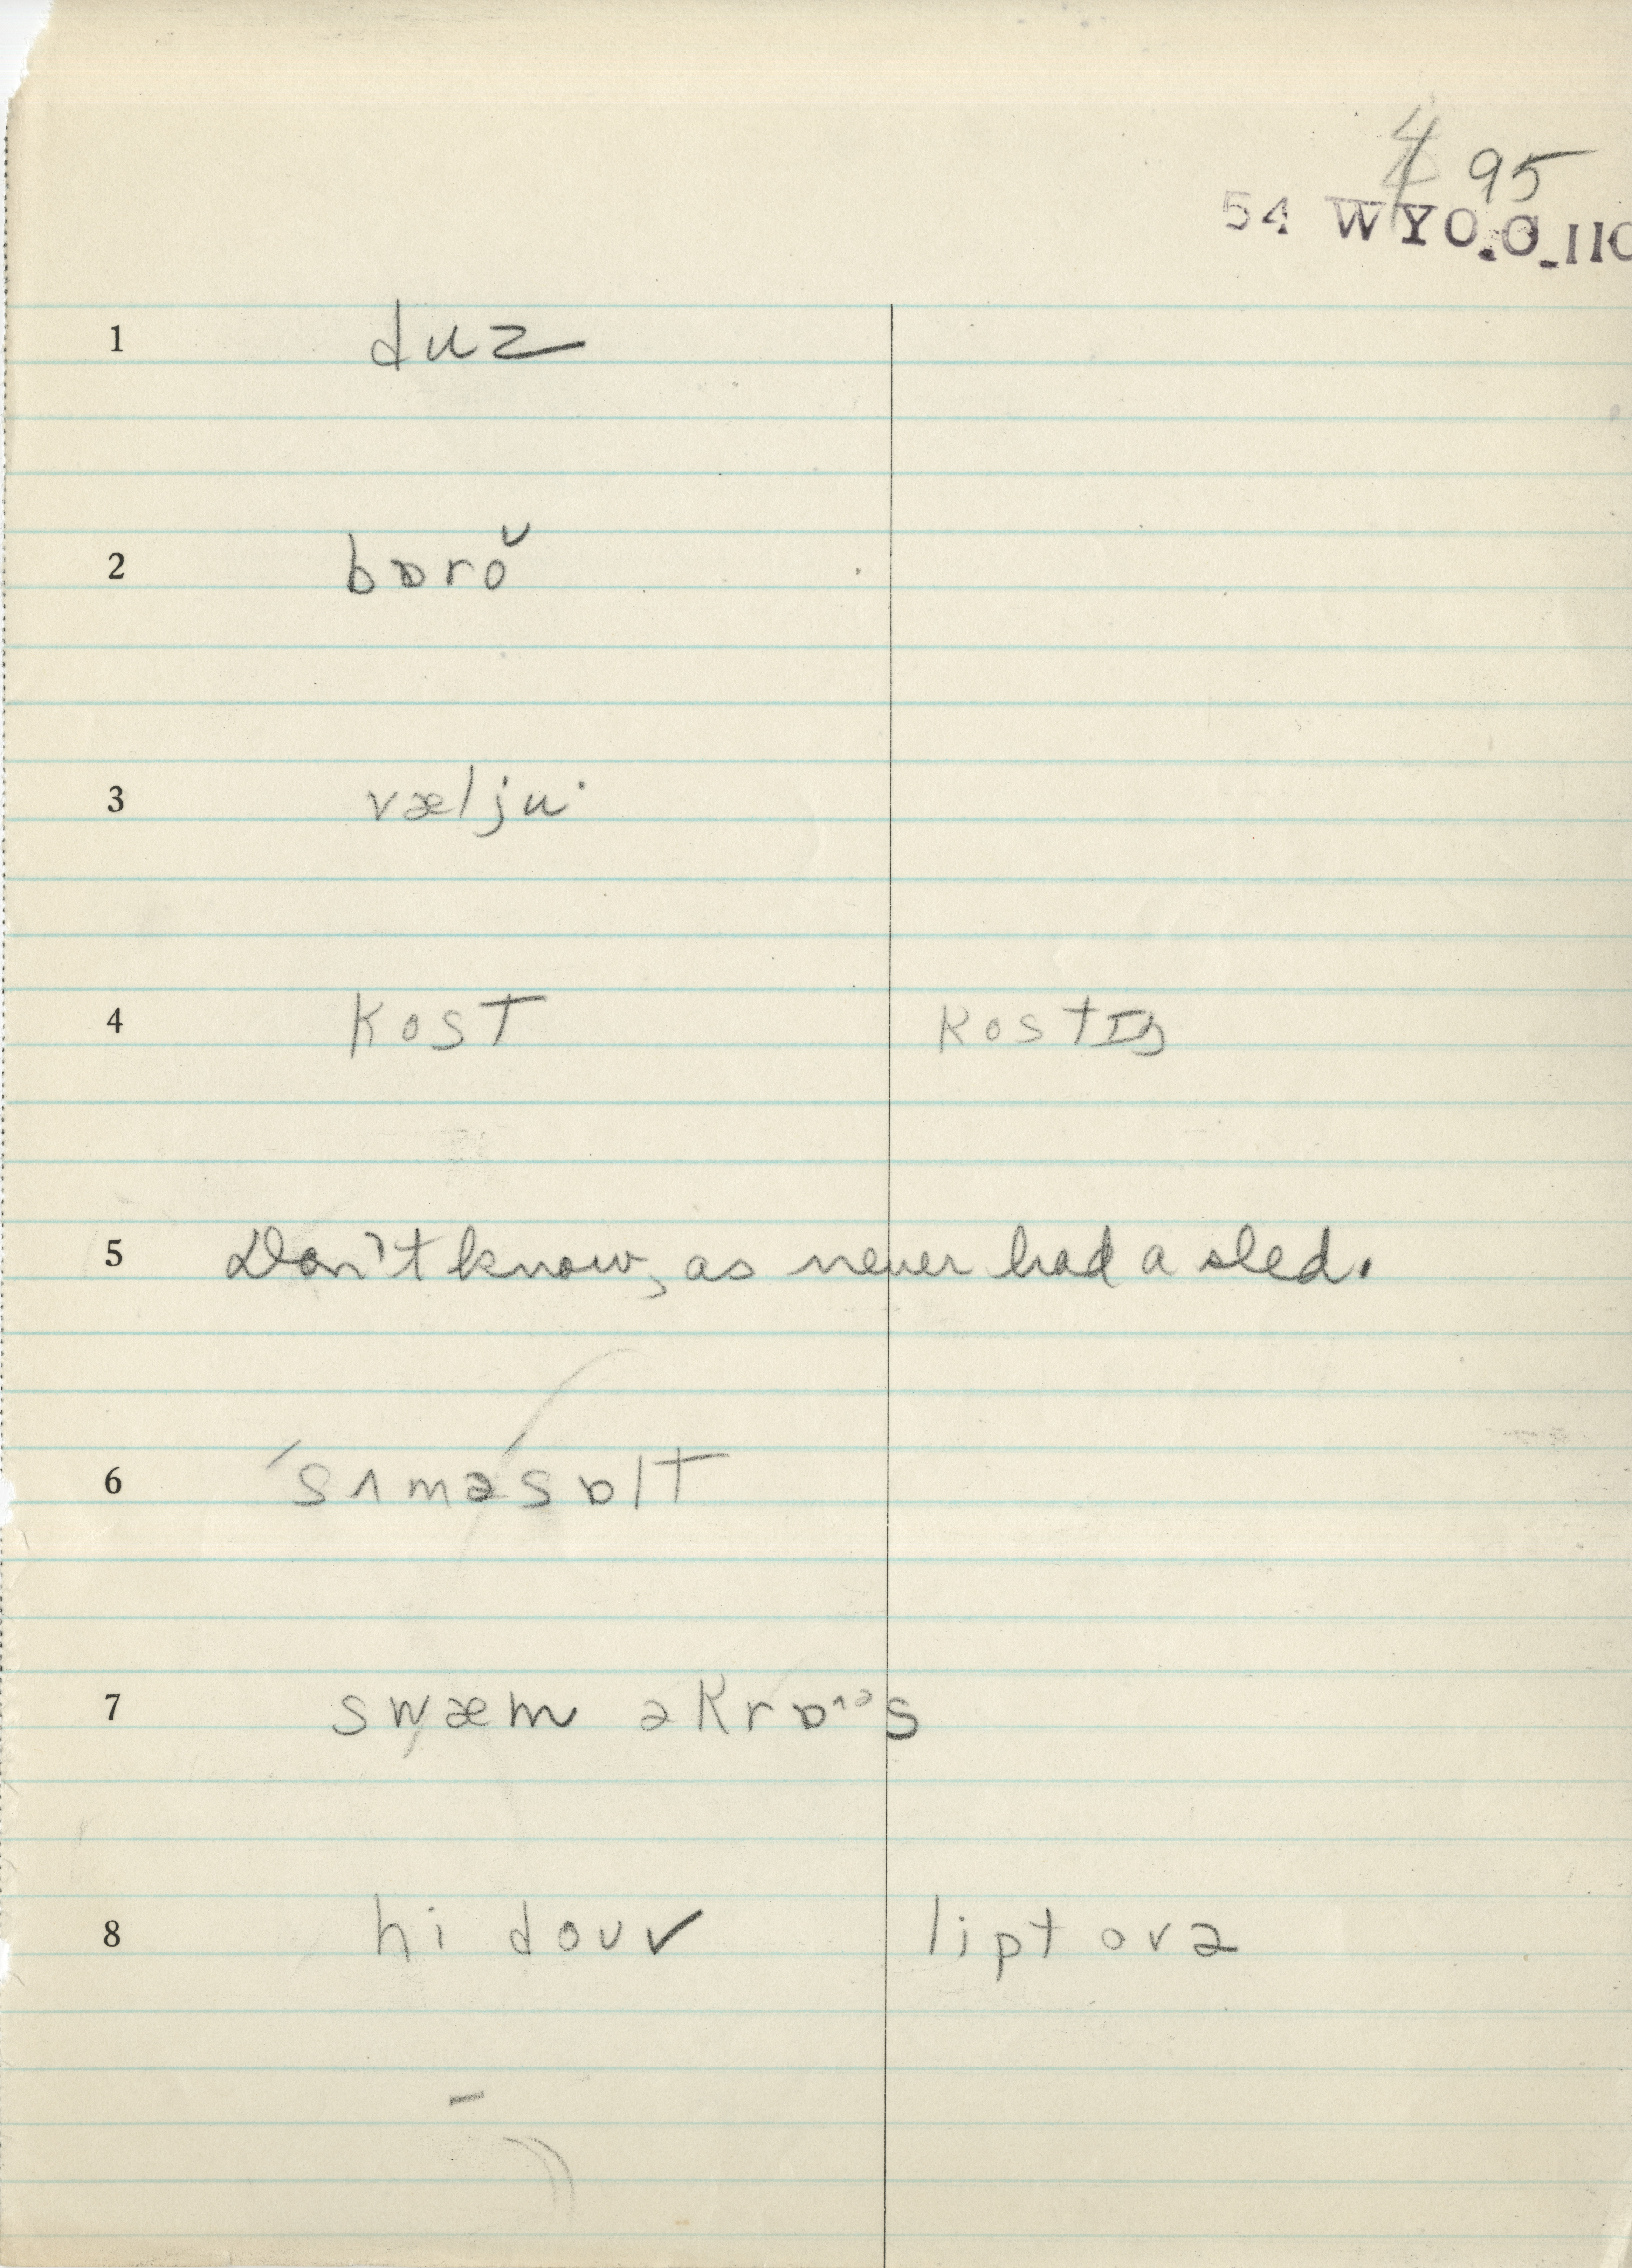 4 95
54 WYO.O_110
1 duz
2 bɒrŏ
3 væljuˑ
4 kost kostɪŋ
5 Don't know, as never had a sled.
6 ˊsʌməˊsɒlt
7 swæm əkrɒˆᵊs
8 hi douv lipt ovə